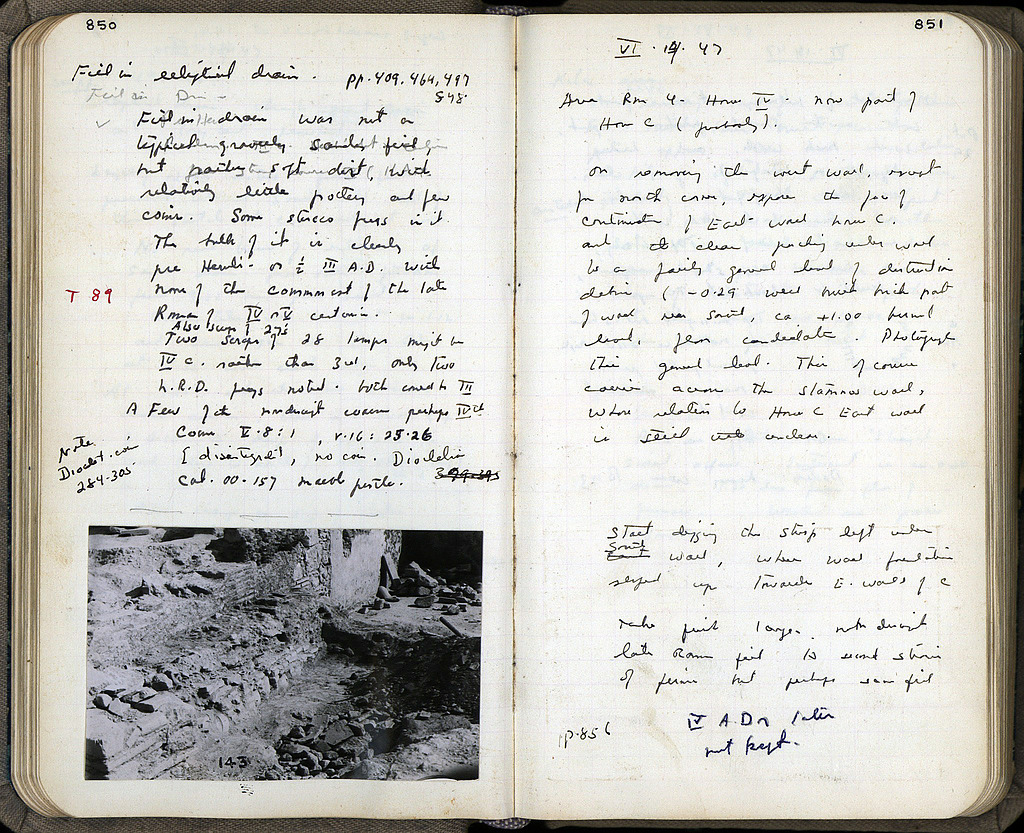 850
Fill in elliptical drain. pp. 409, 464, 497
548.
Fill in Dr
Fill in drain was not a
typical sandy fill
but partly soft dirt, with
relatively little pottery and few
coins. Some stucco frags in it.
The bulk of it is clearly
pre Heruli - or ½ III A.D. with
none of the commonest of the late
Roman of IV or V centuries.
Also scrap of 27s
T 89
Two scraps of 28 lamps might be
IV c. rather than 3rd, only two
L.R.D. frags noted. both could be III
A Few of the nondescript coarse perhaps IV cent
Coins V-8:1, V-16: 25-26
[disintegrated], no coin. Diocletian
399-395
Cat. 00-157 marble pestle.
Note
Dioclet. coin
284-305
143
851
VI · 19 · 47
Area Rm 4 - House IV. now part of
House C (probably).
On removing the west wall, except
for north corner, expose the face of
continuation of East wall house C.
and the clear packing under wall
to a fairly general level of destruction
debris (-0.29 west
of wall near South, ca +1.00
level, floor candidate. Photograph
this general level. This of course
covers across the wall,
whose relation to House C East wall
is still unclear.
Start digging the strip left under
South
East wall, where wall foundation
up towards E. walls of C
Take first large, nondescript
late Roman fill to second
of but perhaps same fill
IV A.D or later
not kept.
pp. 856